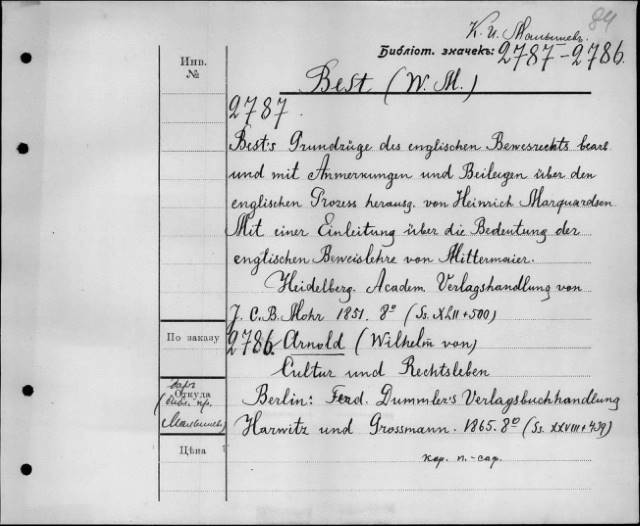 84
К. И. Малышевъ.
Библіот. значекъ: 2787-2786.
Инв.
№
Best (W. M.)
2787.
Best's Grundrüge des englischen Bewesrechts bearb
und mit Anmerkungen und Beilegen über den
englischen Prozess herausg. von Heinrich Marquardsen
Mit einer Einleitung über die Bedeutung der
englischen Beweislehre von Mittermaier.
Heidelberg. Academ. Verlagshandlung von
J. C. B. Mohr 1851. 8° (Ss. XLII + 500)
По заказу
2786. Arnold (Wilhelm von)
Cultur und Rechtsleben
Откуда
Berlin: Ferd. Dummler's Verlagsbuchhandlung
Малышев)
Harwitz und Grossmann. 1865. 8° (Ss. XXVIII + 439)
Цѣна
кор. п.-сар.